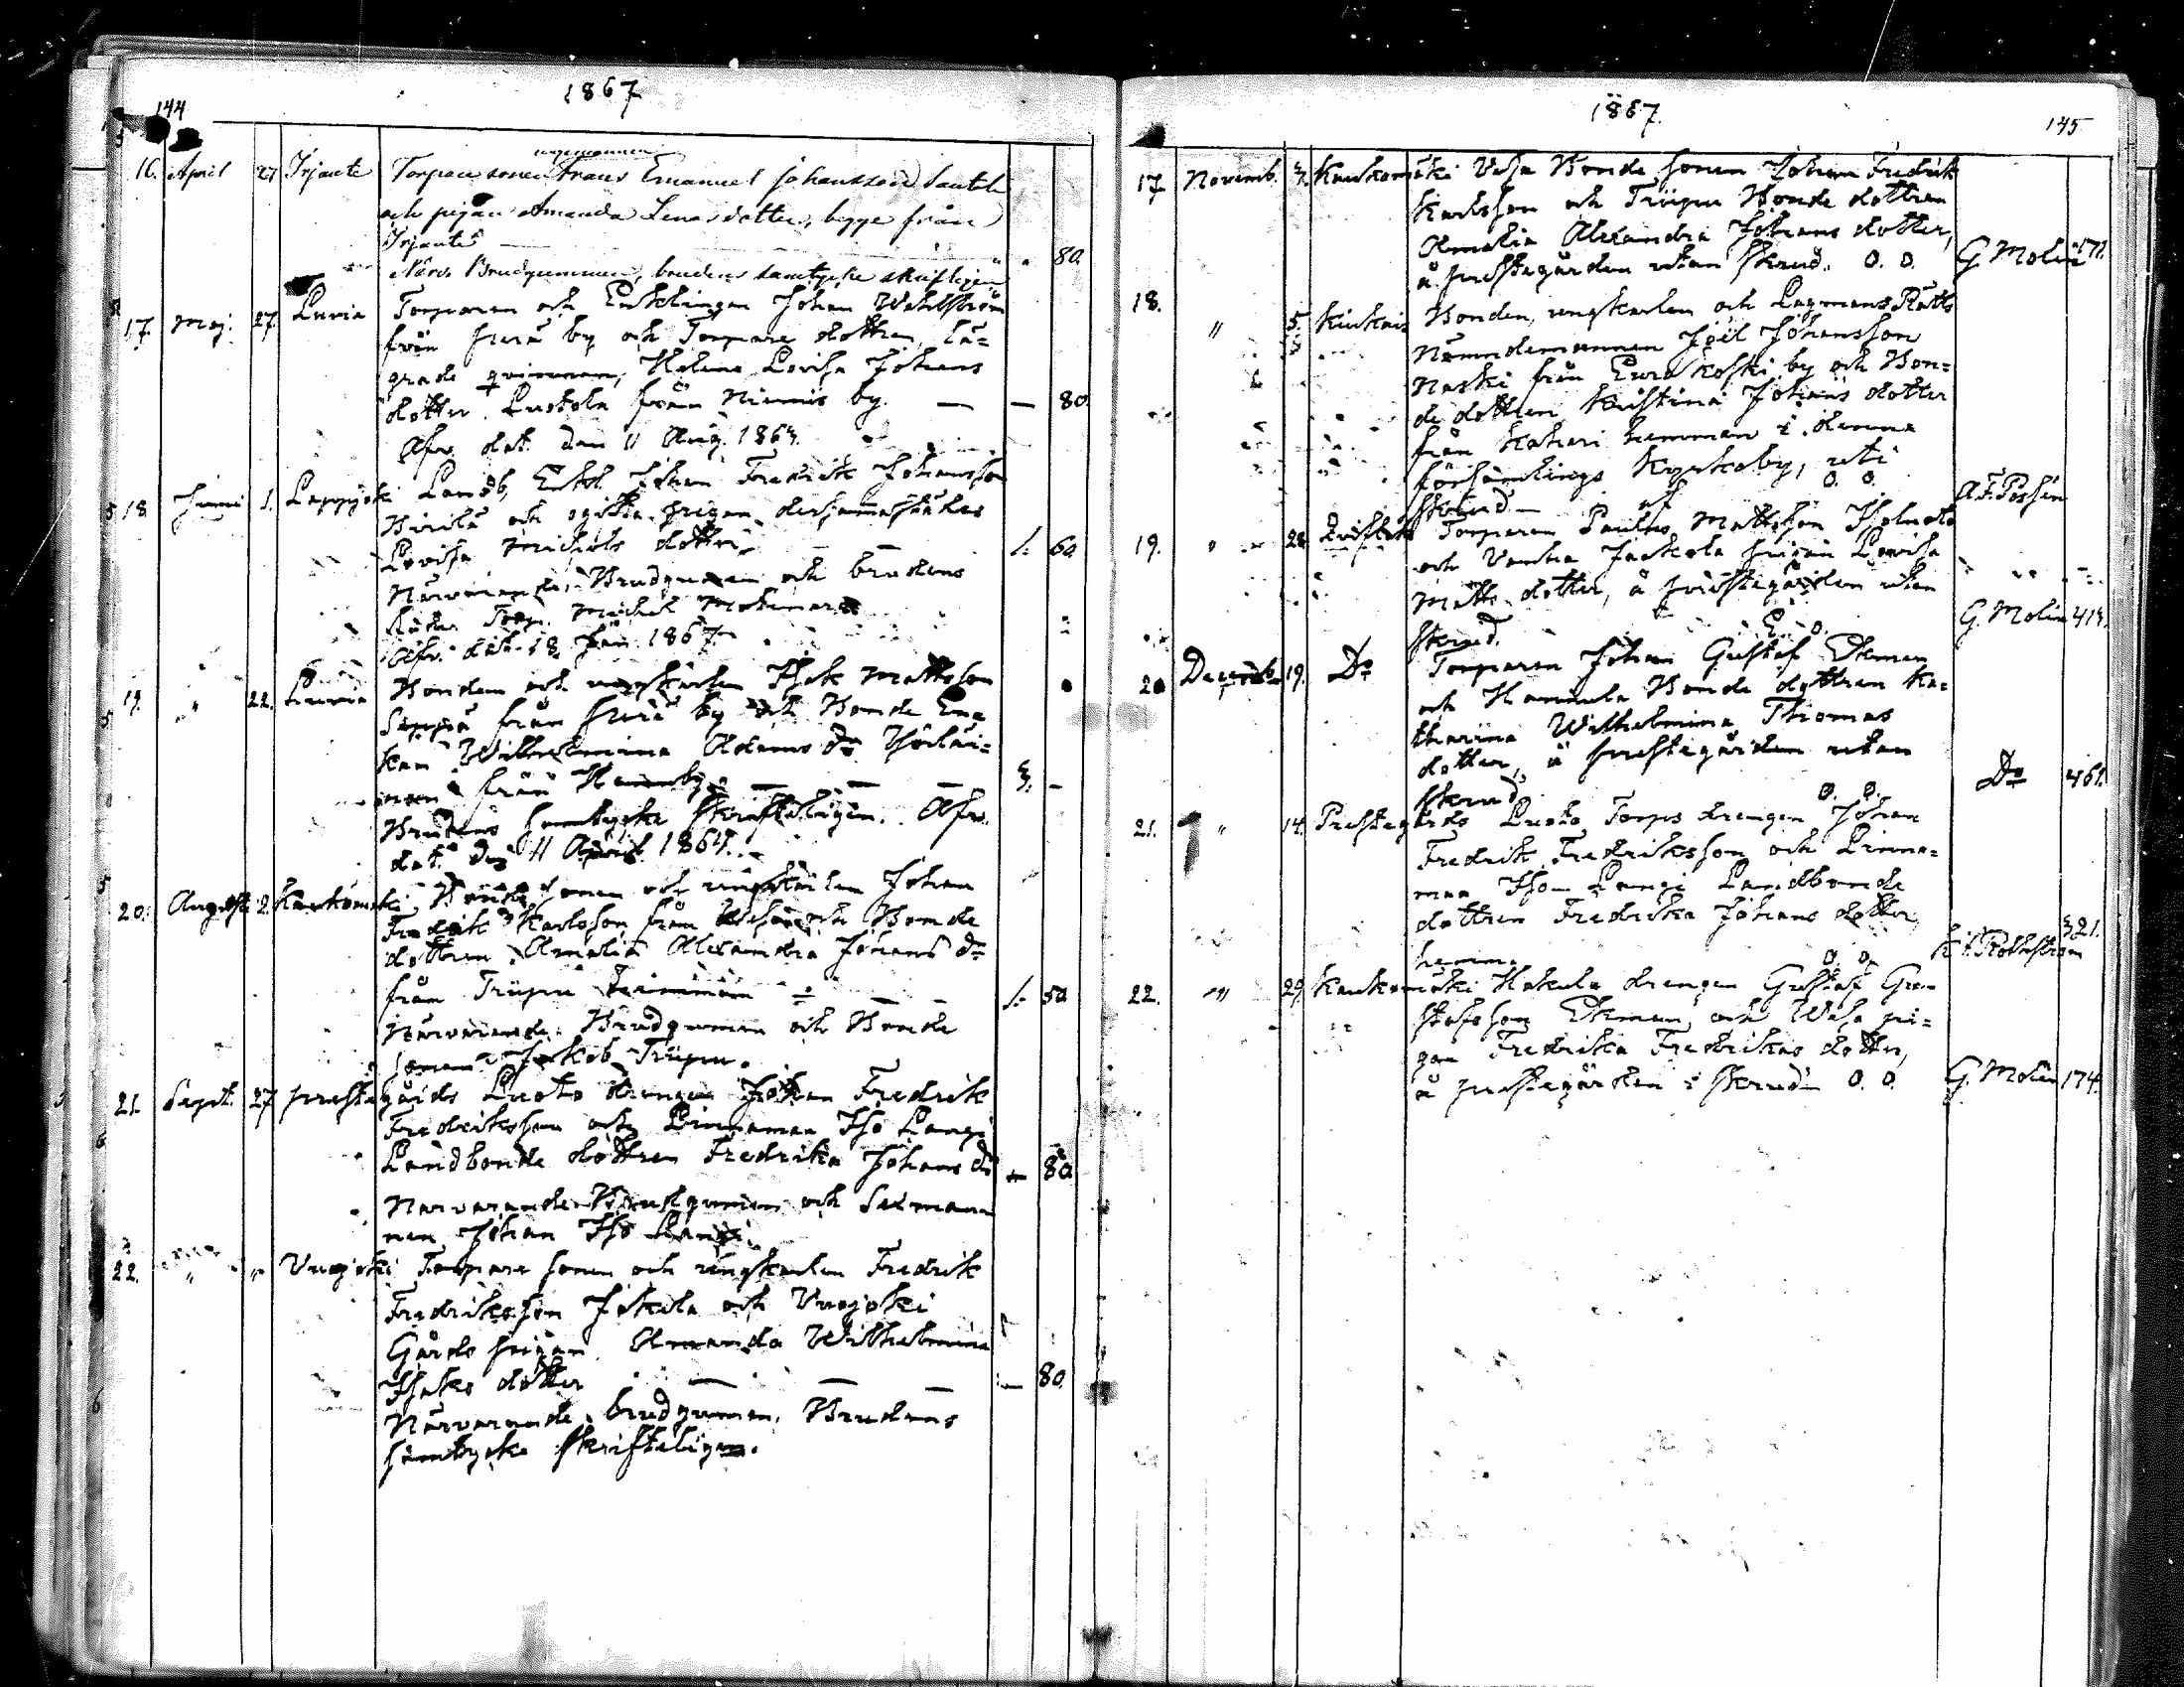 144
1867
16. April 27 Irjante Torpare sonen ungemannen Frans Emanuel Johansson Santele
och pigan Amanda Lenasdotter, bygge från
Irjante — 80.
Närv. Brudgummen, brudens samtycke skriftligen
17. Maj. 27. Luvia Torparen och Enklingen Johan Wahlström
från Perä by och Torpare dottren, lä-
grade qvinnan, Helena Lovisa Johans
dotter Lustola från Niemis by. — — 80.
Afv. dat. den 11 Aug. 1863.
18. Juni 1. Lappijoki Landb. Enkl. Johan Fredrik Johansson
och pigan
Lovisa Michels dotter 1. 60
Närvarande: Brudgumen och brudens
fader Torp. Michel
Afv. dat. 18 1867.
19. " 22. Luvia Bonden och ungkarlen Isak Mattsson
Seppä från Perä by och Bonde Enkan
Wilhelmina Adams dr
från — — — 3. –
Brudens samtycke skrifteligen. Afv.
dat. den 11 April 1867.
20. Augusti 2. Kaukomäki, Bonde sonen och ungkarlen Johan
Fredrik Karlsson från Vesa och Bonde
dottren Amalia Alexandra Johans dr
från Triipu — 1. 50
Närvarande: Brudgumen och Bonde
sonen Jakob Triipu.
21. Sept. 27 Prestegårds Luoto drengen Johan Fredrik
Fredriksson och Linnamaa Iso Langi
Landbonde dottren Fredrika Johans dr — 80
Närvarande: Brudgumen och Sexmannen
Johan Iso Langi.
22. " " Vuojoki Torpare sonen och ungkarlen Fredrik
Fredriksson Jokela och Vuojoki
Gårds pigan Amanda Wilhelmina
Isaks dotter — — — — 80.
Närvarande: brudgumen. Brudens
samtycke skrifteligen.
1867.
145
17. Novemb. 3. Kaukomäki Vesa Bonde sonen Johan Fredrik
Karlsson och Triipu Bonde dottren
Amalia Alexandra Johans dotter,
å prestegården utan skrud. O. O. G. Molin 171.
18. " 5. Kiukais Bonden, ungkarlen och Lagmans Rätts
Nämndemannen Joël Johansson
Naski från Eurakoski by och Bon-
de dottren Kristina Johans dotter
från Kahari hemman i denna
församlings Kyrkoby, uti
skrud — O. O. A. F. Passén
19. " 28. Torparen Paulus Mattsson
och Vanha Jaakola pigan Lovisa
Matts dotter, å prestegården utan
skrud. G. Molin 413.
20 Decemb. 19. Do Torparen Johan Gustaf Ekman
och Hannula Bonde dottren Ka-
tharina Wilhelmina Thomas
dotter, å prestegården utan
skrud. O. O. Do 461.
21. " 14. Prestegårds Luoto Torps drengen Johan
Fredrik Fredriksson och Linna-
maa Iso Langi Landbonde
dottren Fredrika Johans dotter,
hemma O. O. 321.
22. " 29. Kaukomäki Hakula drengen Gustaf Gu-
stafsson Ekman och Vesa pi-
gan Fredrika Fredriks dotter,
å prestegården i skrud. O. O. G. Molin 174.